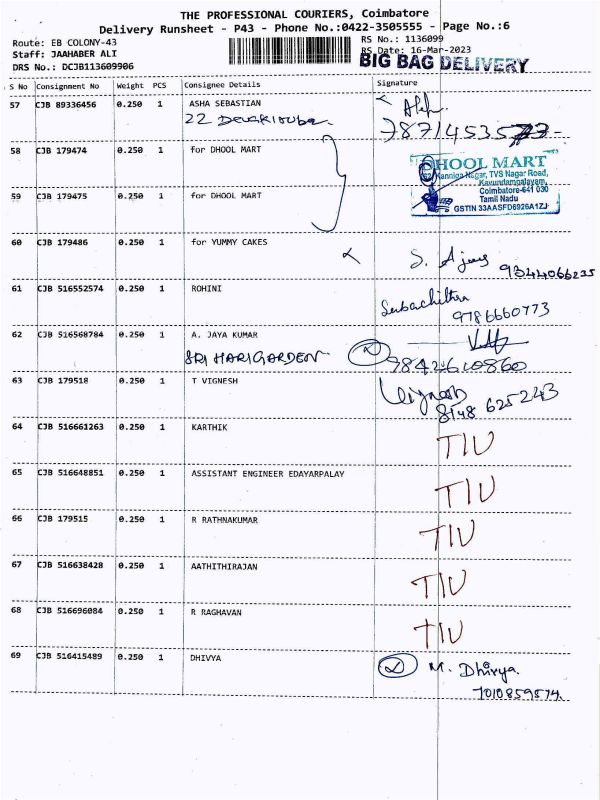 THE PROFESSIONAL COURIERS, Coimbatore
Delivery Runsheet - P43 - Phone No.:0422-3505555 - Page No.:6
Route: EB COLONY-43
RS No.: 1136099
Staff: JAAHABER ALI
RS Date: 16-Mar-2023
DRS No.: DCJB113609906
BIG BAG DELIVERY
S No Consignment No Weight PCS Consignee Details Signature
57 CJB 89336456 0.250 1 ASHA SEBASTIAN
22
58 CJB 179474 0.250 1 for DHOOL MART
DHOOL MART
Kanniga Nagar, TVS Nagar Road,
Kavundampalayam,
Coimbatore-641 030
Tamil Nadu
GSTIN 33AASFD6926A1ZJ
59 CJB 179475 0.250 1 for DHOOL MART
60 CJB 179486 0.250 1 for YUMMY CAKES
9344066235
61 CJB 516552574 0.250 1 ROHINI
9786660773
62 CJB 516568784 0.250 1 A. JAYA KUMAR
SRI HARI GARDEN
9842610860
63 CJB 179518 0.250 1 T VIGNESH
Vignesh
8148 625243
64 CJB 516661263 0.250 1 KARTHIK
TIU
65 CJB 516648851 0.250 1 ASSISTANT ENGINEER EDAYARPALAY
TIU
66 CJB 179515 0.250 1 R RATHNAKUMAR
TIU
67 CJB 516638428 0.250 1 AATHITHIRAJAN
TIU
68 CJB 516696084 0.250 1 R RAGHAVAN
TIU
69 CJB 516415489 0.250 1 DHIVYA
M. Dhivya
7010859874